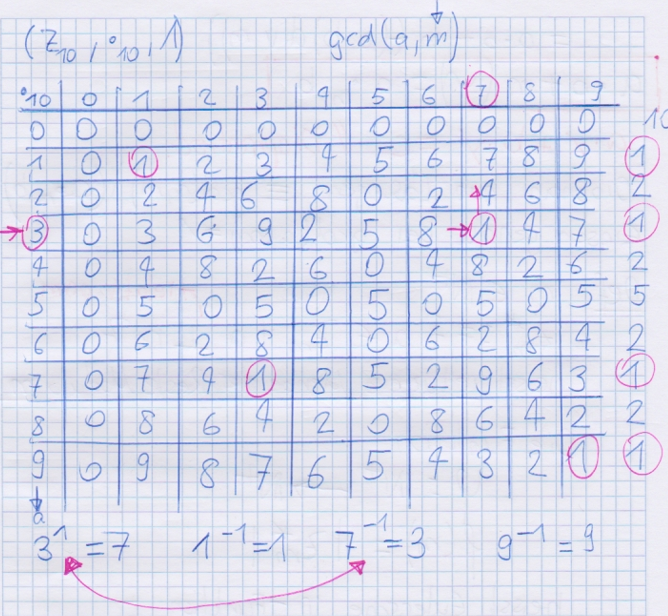 (Z₁₀, ∘₁₀, 1) gcd(a, m)
∘10 0 1 2 3 4 5 6 7 8 9
0 0 0 0 0 0 0 0 0 0 0 10
1 0 1 2 3 4 5 6 7 8 9 1
2 0 2 4 6 8 0 2 4 6 8 2
3 0 3 6 9 2 5 8 1 4 7 1
4 0 4 8 2 6 0 4 8 2 6 2
5 0 5 0 5 0 5 0 5 0 5 5
6 0 6 2 8 4 0 6 2 8 4 2
7 0 7 4 1 8 5 2 9 6 3 1
8 0 8 6 4 2 0 8 6 4 2 2
9 0 9 8 7 6 5 4 3 2 1 1
a
3¹ = 7 1⁻¹ = 1 7⁻¹ = 3 9⁻¹ = 9